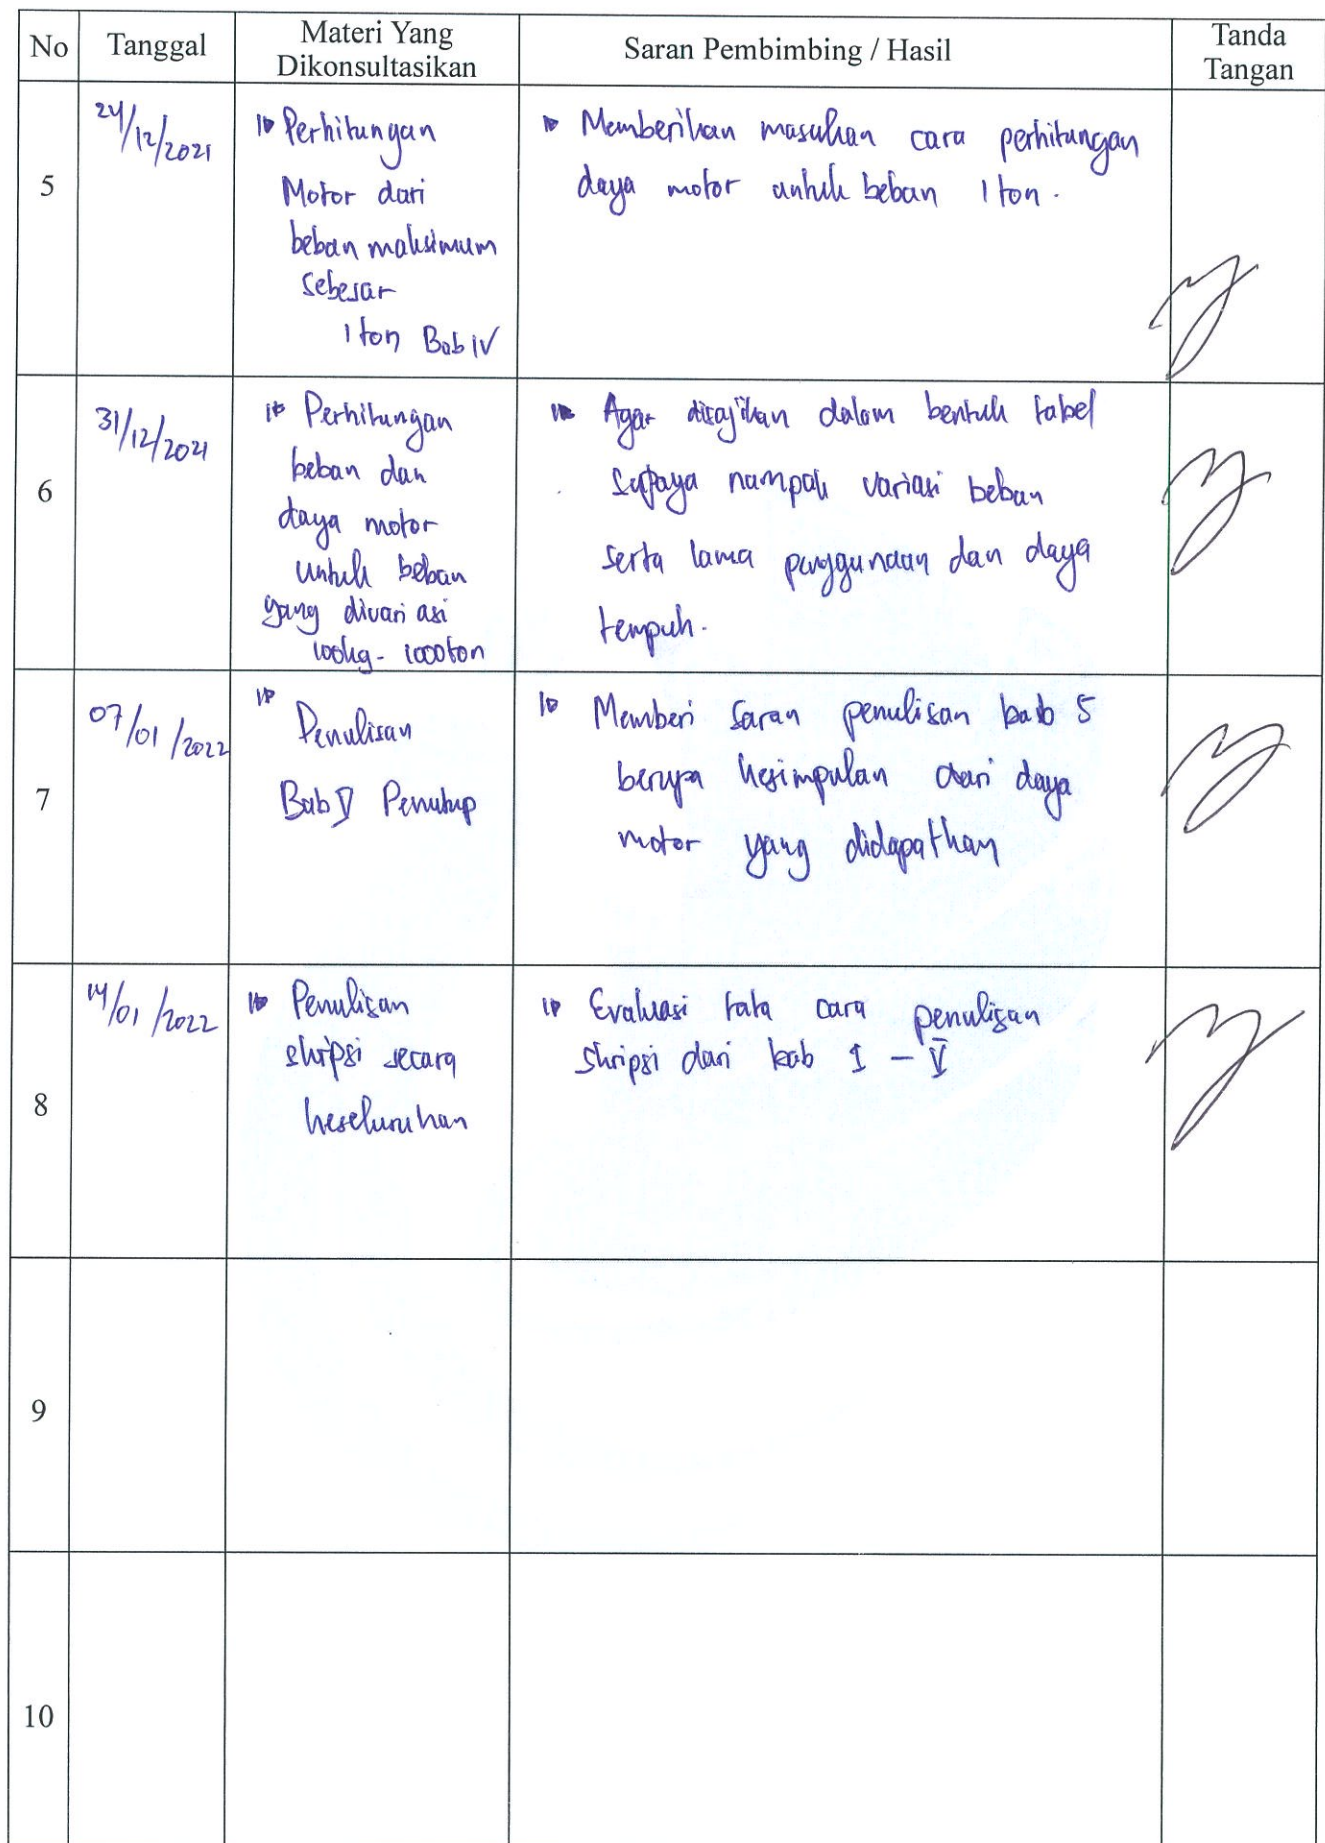 No
Tanggal
Materi Yang
Dikonsultasikan
Saran Pembimbing / Hasil
Tanda
Tangan
5
24/12/2021
Perhitungan
Motor dari
beban maksimum
sebesar
1 ton Bab IV
Memberikan masukan cara perhitungan
daya motor untuk beban 1 ton.
6
31/12/2021
Perhitungan
beban dan
daya motor
untuk beban
yang divariasi
100kg - 1000ton
Agar disajikan dalam bentuk tabel
supaya nampak variasi beban
serta lama penggunaan dan daya
tempuh.
7
07/01/2022
Penulisan
Bab V Penutup
Memberi saran penulisan bab 5
berupa kesimpulan dari daya
motor yang didapatkan
8
14/01/2022
Penulisan
skripsi secara
keseluruhan
Evaluasi tata cara penulisan
skripsi dari bab I - V
9
10